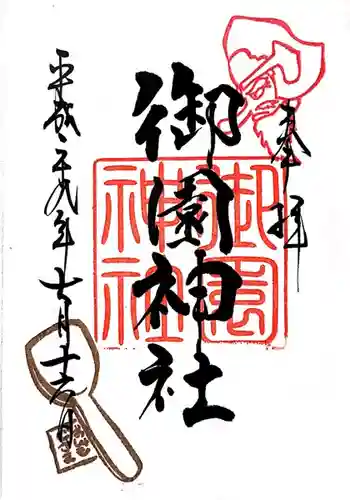 奉拝
御園神社
御園神社
平成二十九年七月十六日